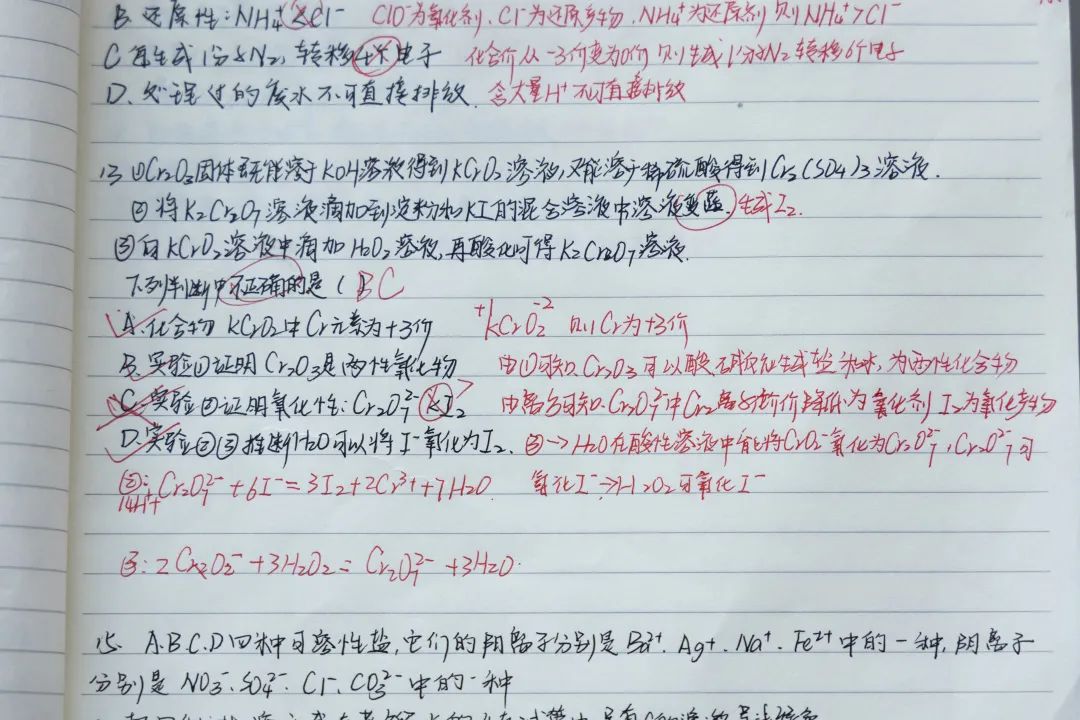 B. 还原性:NH₄⁺<Cl⁻ ClO⁻为氧化剂,Cl⁻为还原产物,NH₄⁺为还原剂 则NH₄⁺>Cl⁻
C 每生成1分子N₂,转移4个电子 化合价从-3价变为0价 则生成1分子N₂转移6个电子
D、处理过的废水不可直接排放. 含大量H⁺不可直接排放
13 ①Cr₂O₃固体既能溶于KOH溶液得到KCrO₂溶液,又能溶于稀硫酸得到Cr₂(SO₄)₃溶液.
② 将K₂Cr₂O₇溶液滴加到淀粉和KI的混合溶液中溶液变蓝.生成I₂.
③向KCrO₂溶液中滴加H₂O₂溶液,再酸化可得K₂Cr₂O₇溶液.
下列判断中不正确的是( )BC
A.化合物KCrO₂中Cr元素为+3价 +KCrO₂⁻² 则Cr为+3价
B.实验①证明Cr₂O₃是两性氧化物 由①可知Cr₂O₃可以酸 生成盐和水,为两性化合物
C.实验②证明氧化性:Cr₂O₇²⁻<I₂ > 由 可知Cr₂O₇²⁻中Cr 价降低为氧化剂 I₂为氧化产物
D.实验②③推断H₂O可以将I⁻氧化为I₂. ③→H₂O₂在酸性溶液中能将CrO₂⁻氧化为Cr₂O₇²⁻,Cr₂O₇²⁻可
②:Cr₂O₇²⁻+6I⁻=3I₂+2Cr³⁺+7H₂O 氧化I⁻→H₂O₂可氧化I⁻
14H⁺+
③:2Cr₂O₂⁻+3H₂O₂=Cr₂O₇²⁻+3H₂O.
15. A.B.C.D四种可溶性盐,它们的阳离子分别是Ba²⁺.Ag⁺.Na⁺.Fe²⁺中的一种,阴离子
分别是NO₃⁻.SO₄²⁻.Cl⁻、CO₃²⁻中的一种